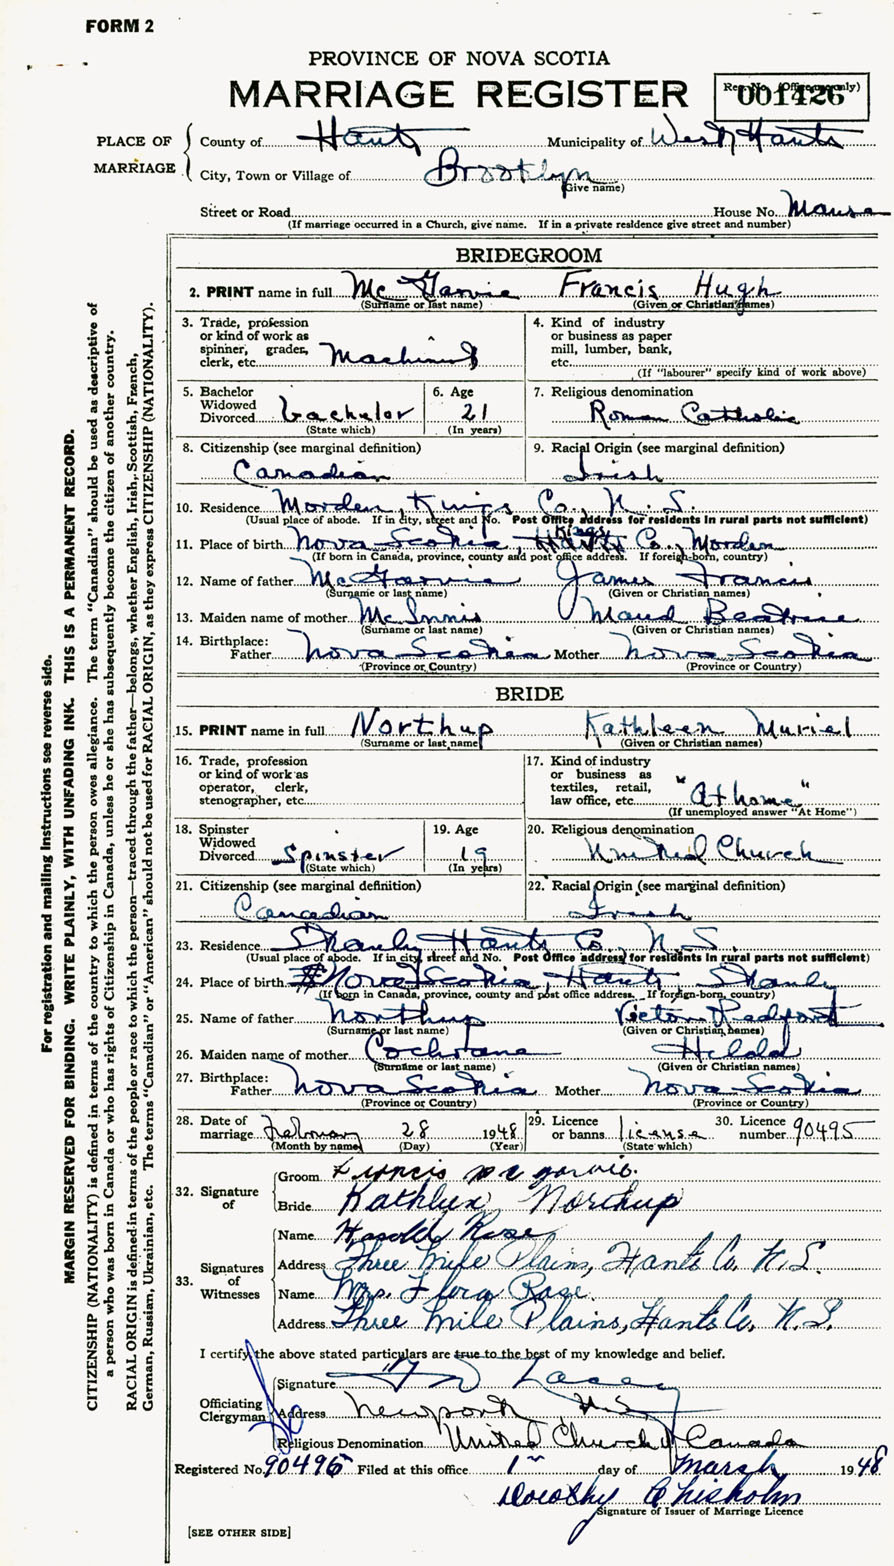 FORM 2
PROVINCE OF NOVA SCOTIA
MARRIAGE REGISTER
Reg. No. (Office use only)
001426
PLACE OF MARRIAGE
County of Hants Municipality of West Hants
City, Town or Village of Brooklyn
(Give name)
Street or Road House No. Manse
(If marriage occurred in a Church, give name. If in a private residence give street and number)
BRIDEGROOM
2. PRINT name in full McGarvie Francis Hugh
(Surname or last name) (Given or Christian names)
3. Trade, profession or kind of work as spinner, grader, clerk, etc. Machinist
4. Kind of industry or business as paper mill, lumber, bank, etc.
(If "labourer" specify kind of work above)
5. Bachelor Widowed Divorced bachelor
(State which)
6. Age 21
(In years)
7. Religious denomination
Roman Catholic
8. Citizenship (see marginal definition)
Canadian
9. Racial Origin (see marginal definition)
Irish
10. Residence Morden, Kings Co., N. S.
(Usual place of abode. If in city, street and No. Post Office address for residents in rural parts not sufficient)
Kings
11. Place of birth Nova Scotia, Hants Co., Morden
(If born in Canada, province, county and post office address. If foreign-born, country)
12. Name of father McGarvie James Francis
(Surname or last name) (Given or Christian names)
13. Maiden name of mother McInnis Maud Beatrice
(Surname or last name) (Given or Christian names)
14. Birthplace:
Father Nova Scotia Mother Nova Scotia
(Province or Country) (Province or Country)
BRIDE
15. PRINT name in full Northup Kathleen Muriel
(Surname or last name) (Given or Christian names)
16. Trade, profession or kind of work as operator, clerk, stenographer, etc.
17. Kind of industry or business as textiles, retail, law office, etc. "At home"
(If unemployed answer "At Home")
18. Spinster Widowed Divorced Spinster
(State which)
19. Age 19
(In years)
20. Religious denomination
United Church
21. Citizenship (see marginal definition)
Canadian
22. Racial Origin (see marginal definition)
Irish
23. Residence Stanly Hants Co., N. S.
(Usual place of abode. If in city, street and No. Post Office address for residents in rural parts not sufficient)
24. Place of birth Nova Scotia, Hants Stanly
(If born in Canada, province, county and post office address. If foreign-born, country)
25. Name of father Northup Victor
(Surname or last name) (Given or Christian names)
26. Maiden name of mother Cochrane
(Surname or last name) (Given or Christian names)
27. Birthplace:
Father Nova Scotia Mother Nova Scotia
(Province or Country) (Province or Country)
28. Date of marriage February 28 1948
(Month by name) (Day) (Year)
29. Licence or banns license
(State which)
30. Licence number 90495
32. Signature of
Groom Francis Mc Garvie
Bride Kathleen Northup
33. Signatures of Witnesses
Name Harold Rose
Address Three Mile Plains, Hants Co. N. S.
Name Mrs. Flora Rose.
Address Three Mile Plains, Hants Co. N. S.
I certify the above stated particulars are true to the best of my knowledge and belief.
Officiating Clergyman
Signature
Address Newport N.S.
Religious Denomination United Church of Canada
Registered No. 90495 Filed at this office 1st day of March 1948
Dorothy Chisholm
Signature of Issuer of Marriage Licence
[SEE OTHER SIDE]
For registration and mailing instructions see reverse side.
MARGIN RESERVED FOR BINDING. WRITE PLAINLY, WITH UNFADING INK. THIS IS A PERMANENT RECORD.
CITIZENSHIP (NATIONALITY) is defined in terms of the country to which the person owes allegiance. The term "Canadian" should be used as descriptive of
a person who was born in Canada or who has rights of Citizenship in Canada, unless he or she has subsequently become the citizen of another country.
RACIAL ORIGIN is defined in terms of the people or race to which the person—traced through the father—belongs, whether English, Irish, Scottish, French,
German, Russian, Ukrainian, etc. The terms "Canadian" or "American" should not be used for RACIAL ORIGIN, as they express CITIZENSHIP (NATIONALITY).